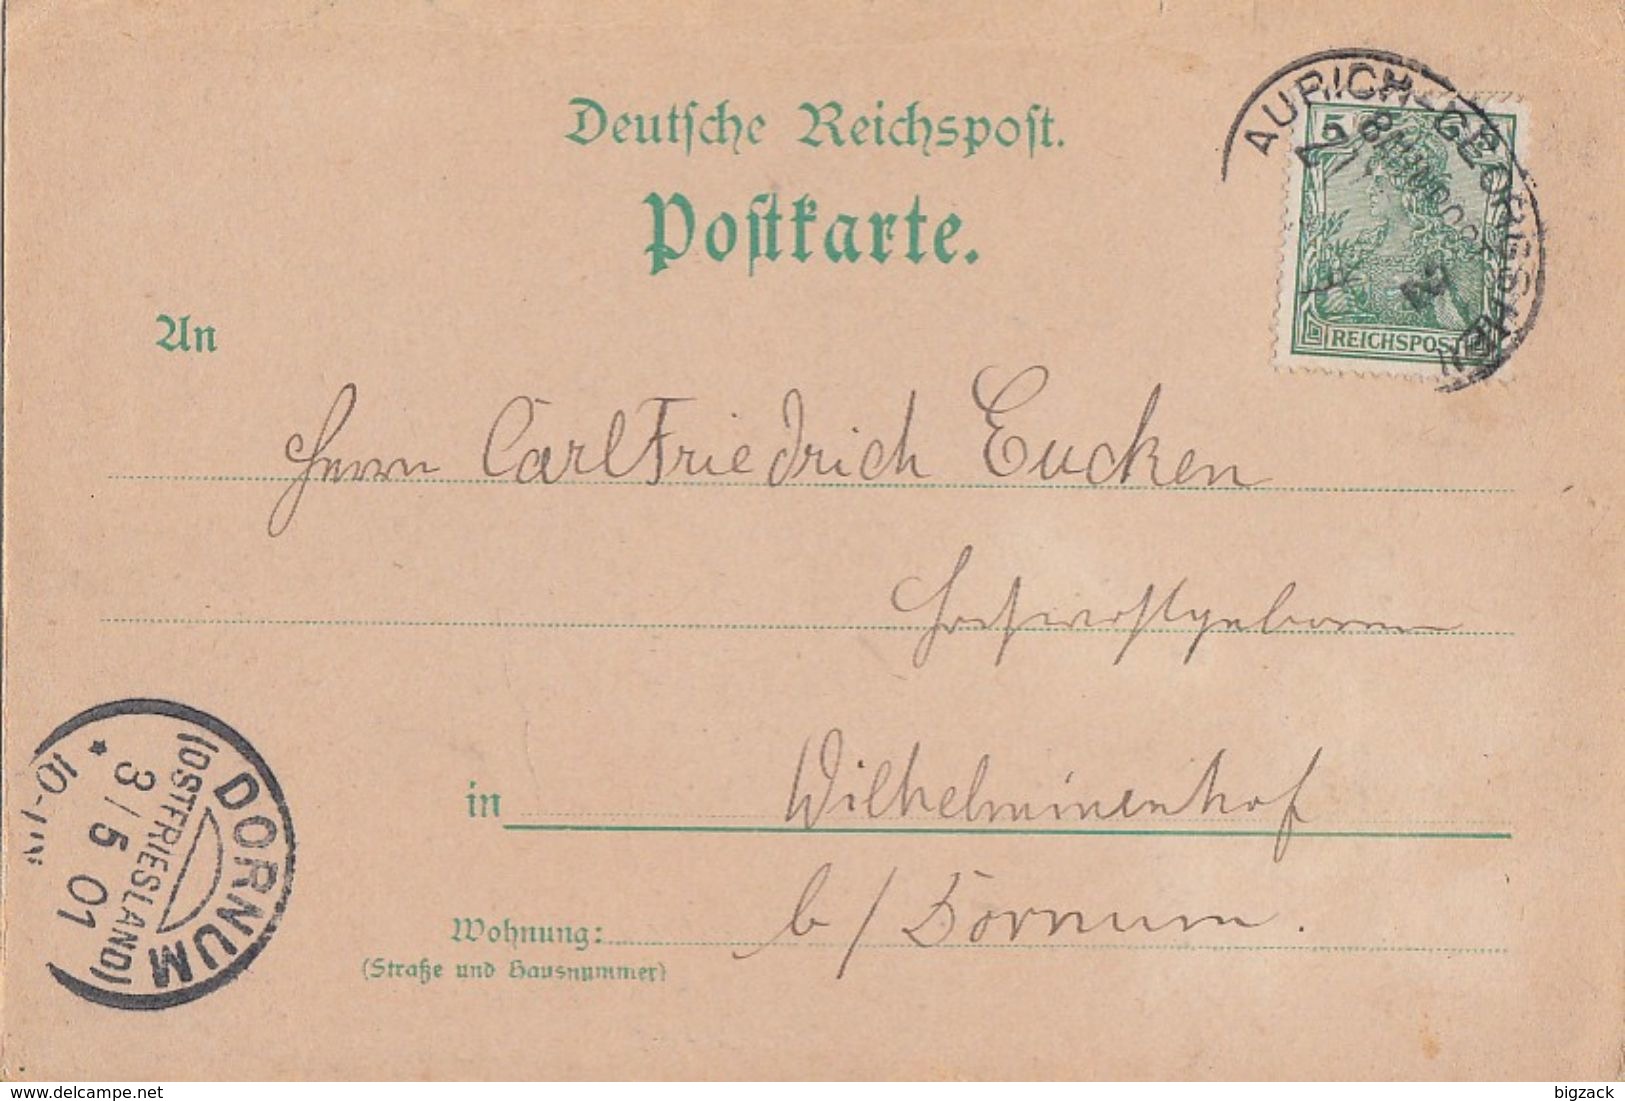 Deutsche Reichspost.
Postkarte.
AURICH-GEORGSHEIL
BAHNPOST
5
REICHSPOST
An
Herrn Carl Friedrich Eucken
Hochwohlgeboren
in Wilhelminenhof
Wohnung: b/ Dornum.
(Straße und Hausnummer)
DORNUM
(OSTFRIESLAND)
3/5 01
* 10-11
delcampe.net
bigzack